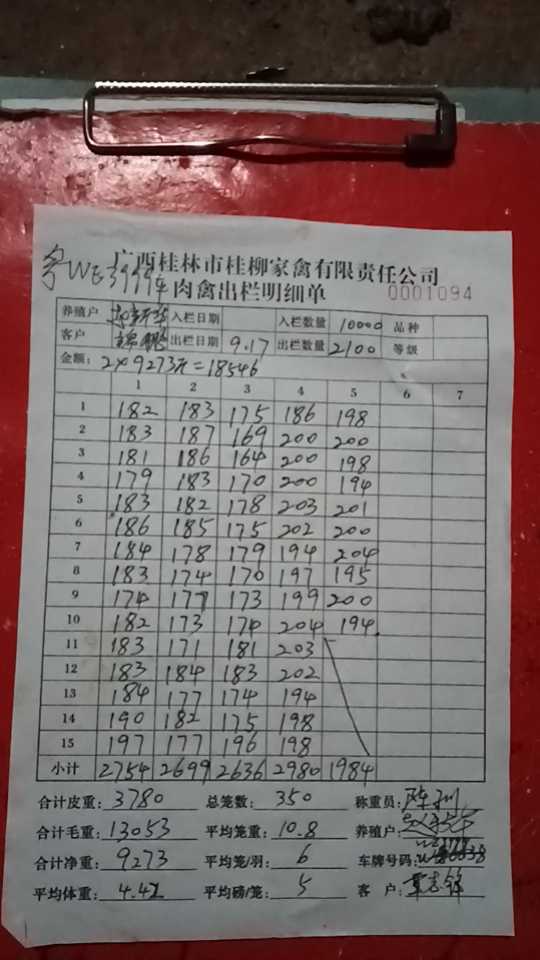 广西桂林市桂柳家禽有限责任公司
粤WE3999车
肉禽出栏明细单 0001094
养殖户 入栏日期 入栏数量 10000 品种
客户 出栏日期 9.17 出栏数量 2100 等级
金额: 2×9273元=18546
1 2 3 4 5 6 7
1 182 183 175 186 198
2 183 187 169 200 200
3 181 186 164 200 198
4 179 183 170 200 194
5 183 182 178 203 201
6 186 185 175 202 200
7 184 178 179 194 204
8 183 174 170 197 195
9 174 177 173 199 200
10 182 173 174 204 194
11 183 171 181 203
12 183 184 183 202
13 184 177 174 194
14 190 182 175 198
15 197 177 196 198
小计 2754 2699 2636 2980 1984
合计皮重: 3780 总笼数: 350 称重员:
合计毛重: 13053 平均笼重: 10.8 养殖户:
合计净重: 9273 平均笼/羽: 6 车牌号码:
平均体重: 4.42 平均磅/笼: 5 客 户: